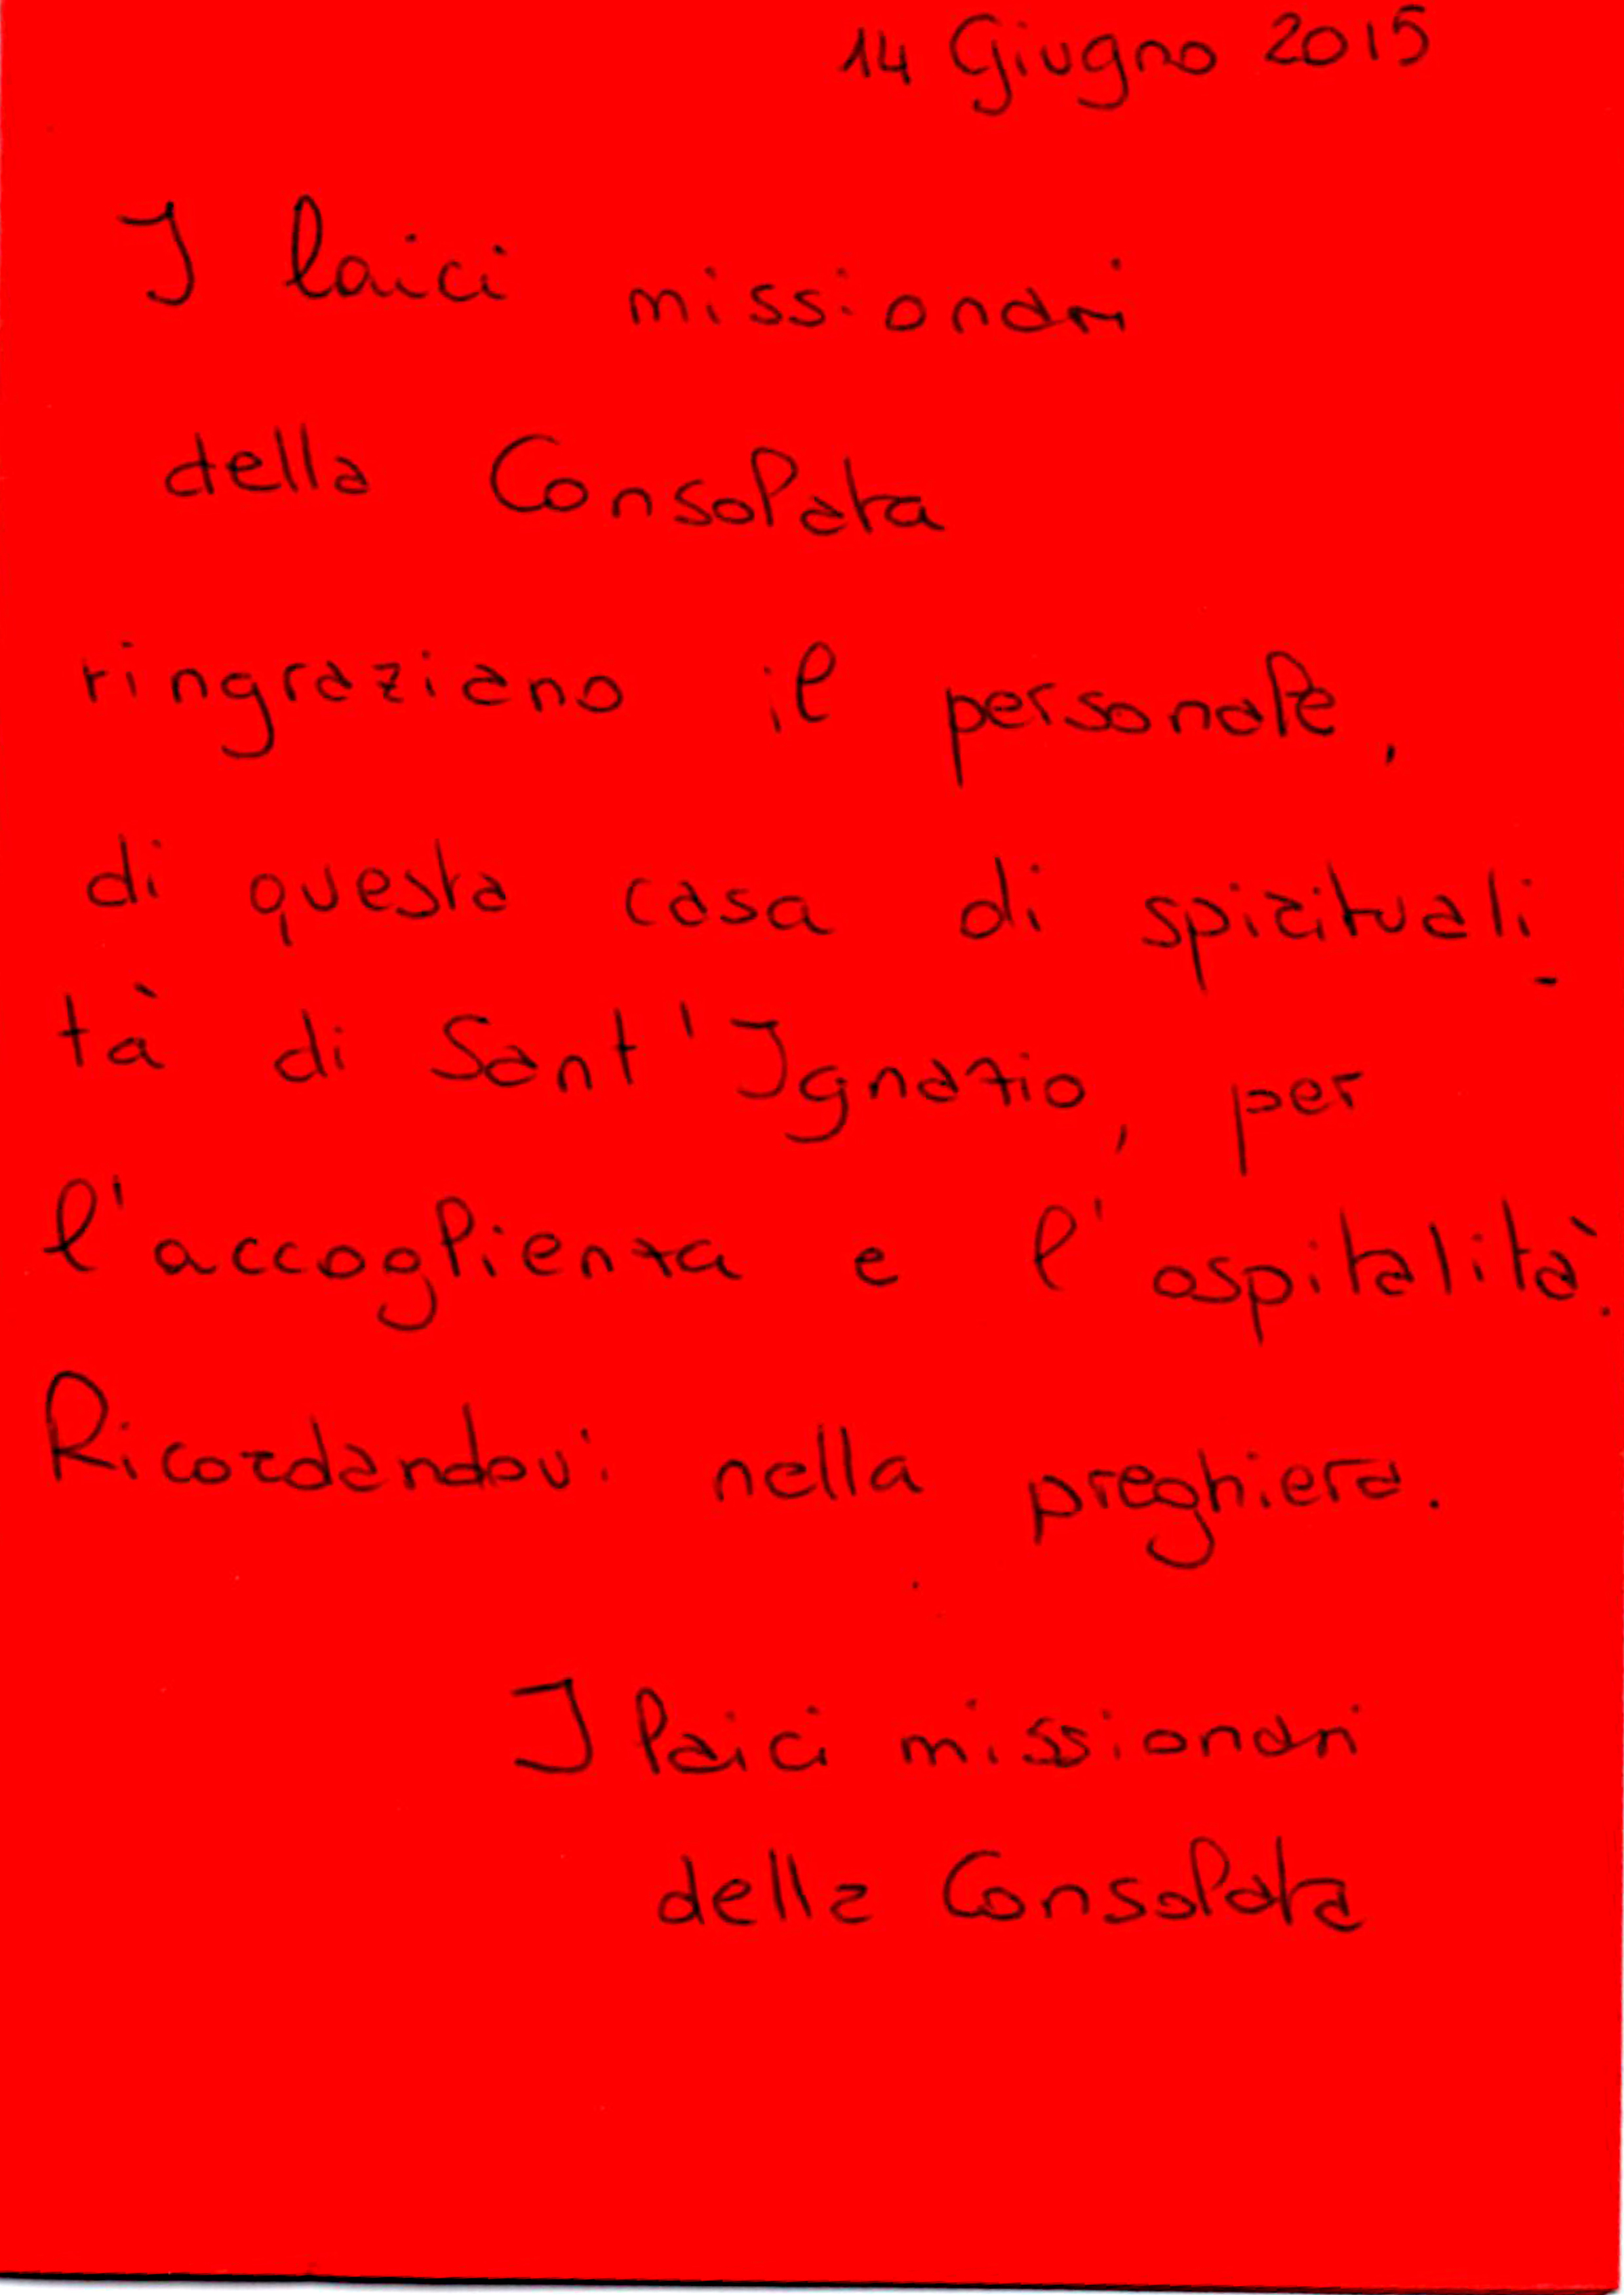 14 Giugno 2015
I laici missionari
della Consolata
ringraziano il personale,
di questa casa di spirituali-
tà di Sant'Ignazio, per
l'accoglienza e l'ospitalità.
Ricordandovi nella preghiera.
I laici missionari
della Consolata